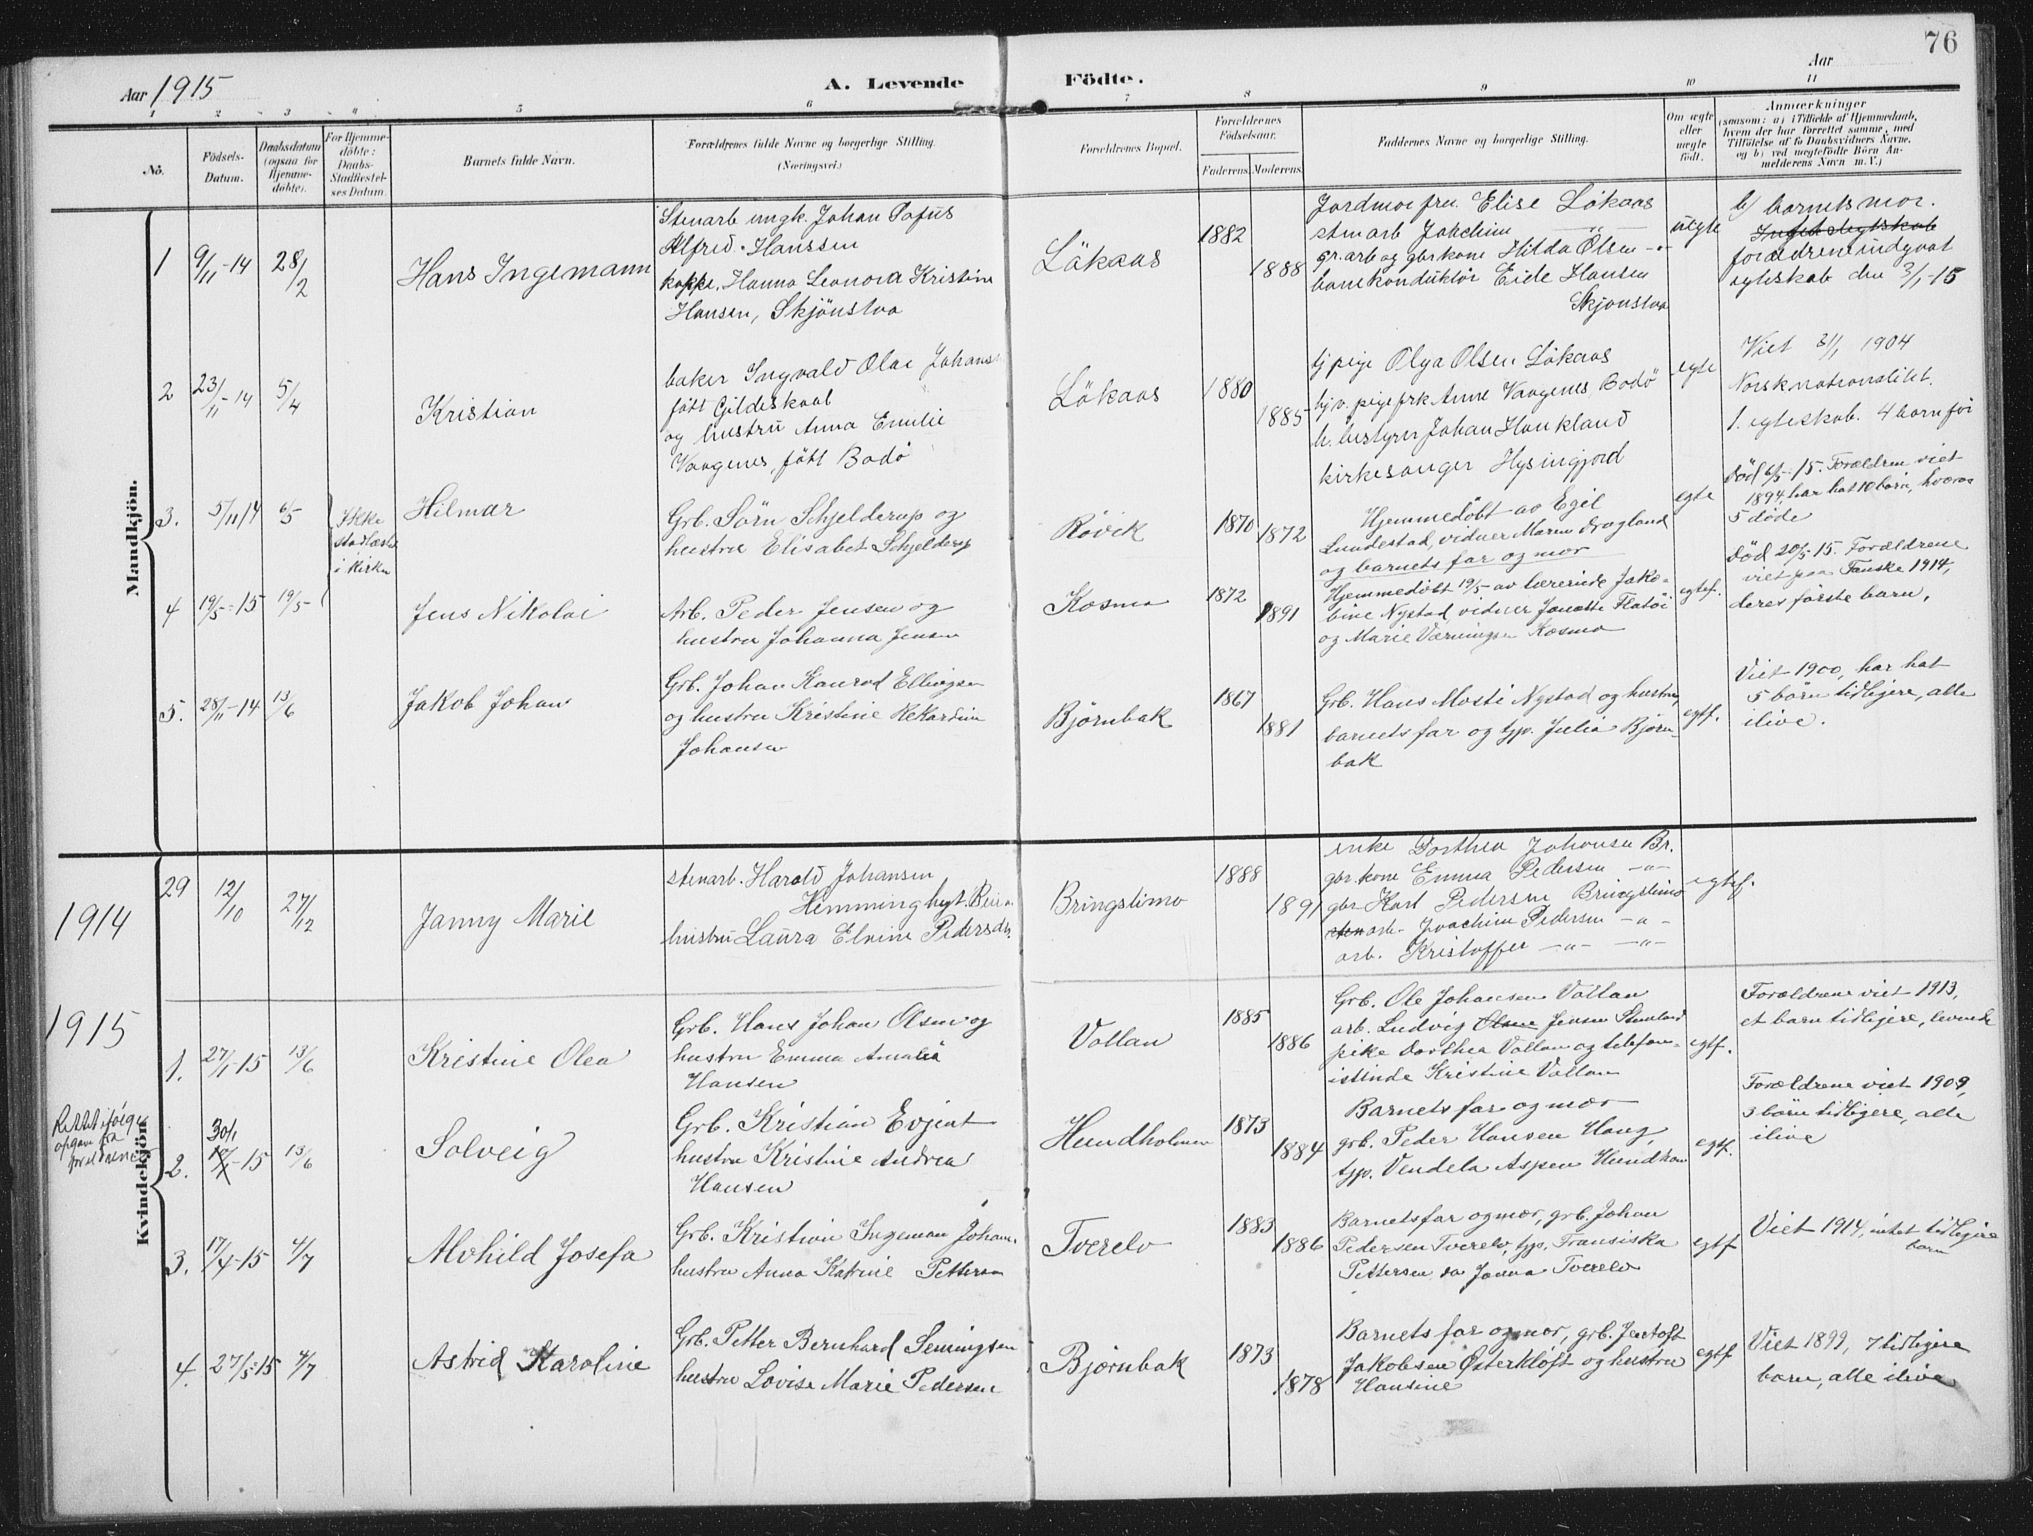 76
Aar 1915
A. Levende Födte.
Aar
1 2 3 4 5 6 7 8 9 10 11
No.
Födsels-
Datum.
Daabsdatum
(ogsaa for
Hjemme-
döbte).
For Hjemme-
döbte:
Daabs-
Stadfæstel-
ses Datum
Barnets fulde Navn.
Forældrenes fulde Navne og borgerlige Stilling.
(Næringsvei.)
Forældrenes Bopæl.
Forældrenes
Födselsaar.
Faderens. Moderens.
Faddernes Navne og borgerlige Stilling.
Om ægte
eller
uægte
født.
Anmærkninger
(saasom: a) i Tilfælde af Hjemmedaab,
hvem der har forrettet samme, med
Tilföielse af to Daabsvidners Navne,
og b) ved uægtefödte Börn An-
melderens Navn m. V.)
Mandkjön.
1 9/11-14 28/2 Hans Ingemann
Stenarb ungk. Johan Pofus
Alfred Hanssen
kokke, Hanna Leonora Kristine
Hansen, Skjönstva
Lökaas 1882 1888
Jordmor fru Elise Lökaas
stenarb Joachim — " —
gr.arb og gbr kone Hilda Olsen -"-
banekonduktör Eide Hansen
Skjonstva
uegte
b) barnets mor.
foreldrene indgaat
egteskab den 3/1-15
2 23/11-14 5/4 Kristian
baker Ingvald Olai Johans
fött Gildeskaal
og hustru Anna Emilie
Vaagenes, fött Bodö
Lökaas 1880 1885
tj pige Olga Olsen Lökaas
tj.v. pige frk Anne Vaagenes Bodö
h. bestyrer Johan Haukland
kirkesanger Hysingjord
egte
Viet 3/1 1904
Norsk nationalitet.
1. egteskab. 4 born för
3. 5/11 14 6/5
Ikke
stadfæstet
i kirken
Hilmar
Grb. Sörn Schjelderup og
hustru Elisabet Schjelderup
Røvik 1870 1872
Hjemmedöbt av Egil
Lundestad, vidner Maren Dragland
og barnets far og mor
egte
Död 6/5-15. Forældrene viet
1894, har hat 10 barn, hvorav
5 döde
4 19/5-15 19/5- Jens Nikolai
Arb. Peder Jensen og
hustru Johanna Jensen
Kosmo 1872 1891
Hjemmedöbt 19/5- av lærerinde Jako-
bine Nystad vidner Janette Flatöi
og Marie Værningsen Kosmo
egtef.
Död 20/5-15. Forældrene
viet paa Fauske 1914,
deres förste barn.
5. 28/11-14 13/6 Jakob Johan
Grb. Johan Konrad Ellingsen
og hustru Kristine Rekardine
Johansen
Björnbak 1867 1881
Grb. Hans Mosti Nystad og hustru,
barnets far og tjp. Julia Björn-
bak
egtf.
Viet 1900, har hat
5 börn tidligere, alle
ilive.
Kvindekjön.
1914
29 12/10 27/12 Janny Marie
stenarb. Harald Johansen
Hemminghyt. Beiarn
hustru Laura Elvine Pedersdtr.
Bringslimo 1888 1891
enke Dorthea Johansen Br.
gbr. kone Emma Pedersen -"-
gbr Karl Pedersen Bringslimo
arb- Joachim Pedersen -"-
arb. Kristoffer -"- -"-
egtef.
1915
1. 27/1-15 13/6 Kristine Olea
Grb. Hans Johan Olsen og
hustru Emma Amalia
Hansen
Vollan 1885 1886
Grb. Ole Johansen Vollan
arb. Ludvig Olsen Jensen
pike Dorthea Vollan og telefon-
istinde Kristine Vollan
egtf.
Forældrene viet 1913,
et barn tidligere, levende
Rettet ifölge
opgave fra
foreldrene
2. 30/1 -15 13/6 Solveig
Grb. Kristian Evjent
hustru Kristine Andrea
Hansen
Hundholmen 1873 1884
Barnets far og mor
grb. Peder Hansen Haug,
tjp. Vendela Aspen Hundholm
egtf.
Forældrene viet 1909,
3 börn tidligere, alle
ilive
3. 17/4-15 4/7 Alvhild Josefa
Grb. Kristian Ingeman Johan.
hustru Anna Katrine Pettersen
Tverelv 1883 1886
Barnets far og mor, grb. Johan
Pedersen Tverelv, tjp. Fransiska
Pettersen, do Janna Tverelv
egtf
Viet 1914, intet tidligere
barn
4. 27/5-15 4/7 Astrid Karoline
Grb. Petter Bernhard Semingsen
hustru Lovise Marie Pedersen
Björnbak 1873 1878
Barnets far og mor, grb. Jentoft
Jakobsen Østerkloft og hustru
Hansine
egtf
Viet 1899, 7 tidligere
barn, alle ilive